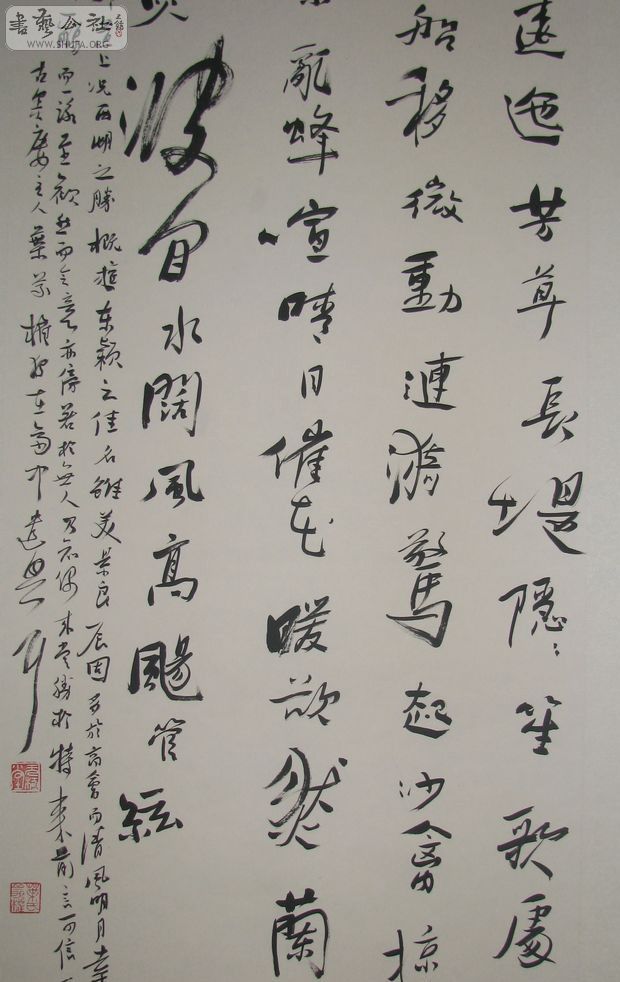 書藝公社
WWW.SHUFA.ORG
逶迤芳草長堤隱〻笙歌處
船移微動漣漪驚起沙禽掠
亂蜂喧晴日催花暖欲然蘭
波間水闊風高颺管絃
上况西湖之勝概擅東潁之佳名雖美景良辰固多於高會而清風明月幸
而一詠至歡然而會意亦傍若於無人乃知偶來常勝於特來前言可信
主人葉